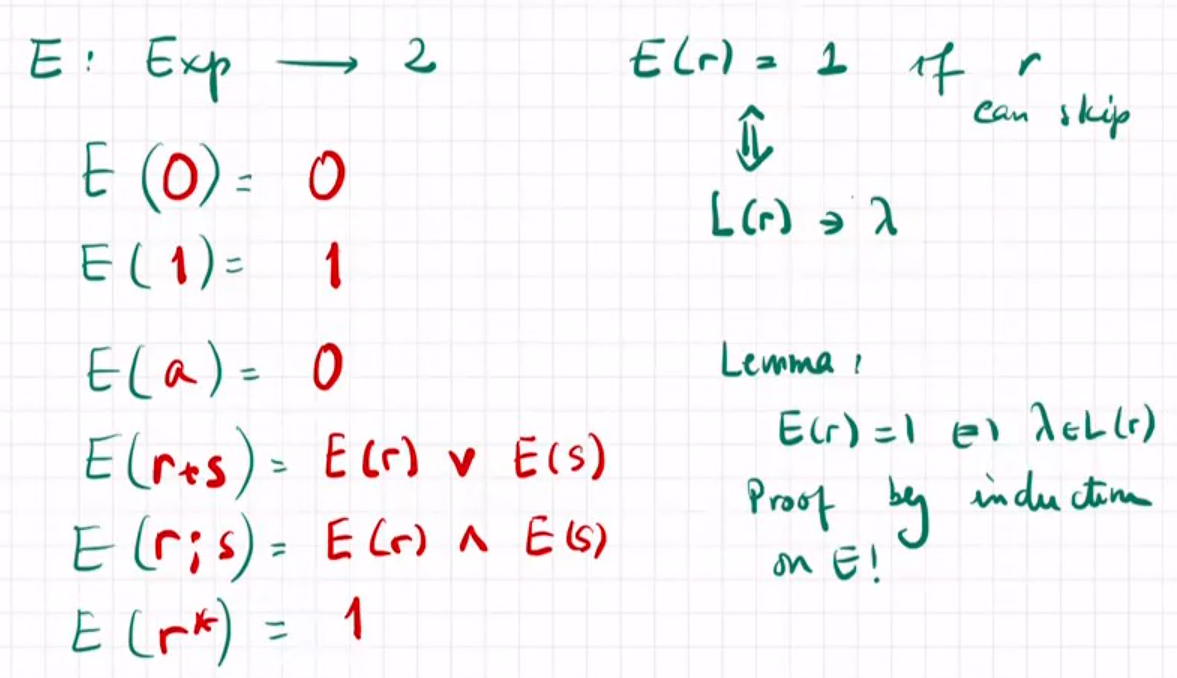 E : Exp → 2
E(0) = 0
E(1) = 1
E(a) = 0
E(r+s) = E(r) ∨ E(s)
E(r;s) = E(r) ∧ E(s)
E(r*) = 1
E(r) = 1 if r
can skip
⇕
L(r) ∋ λ
Lemma :
E(r) = 1 ⇔ λ ∈ L(r)
Proof by induction
on E!